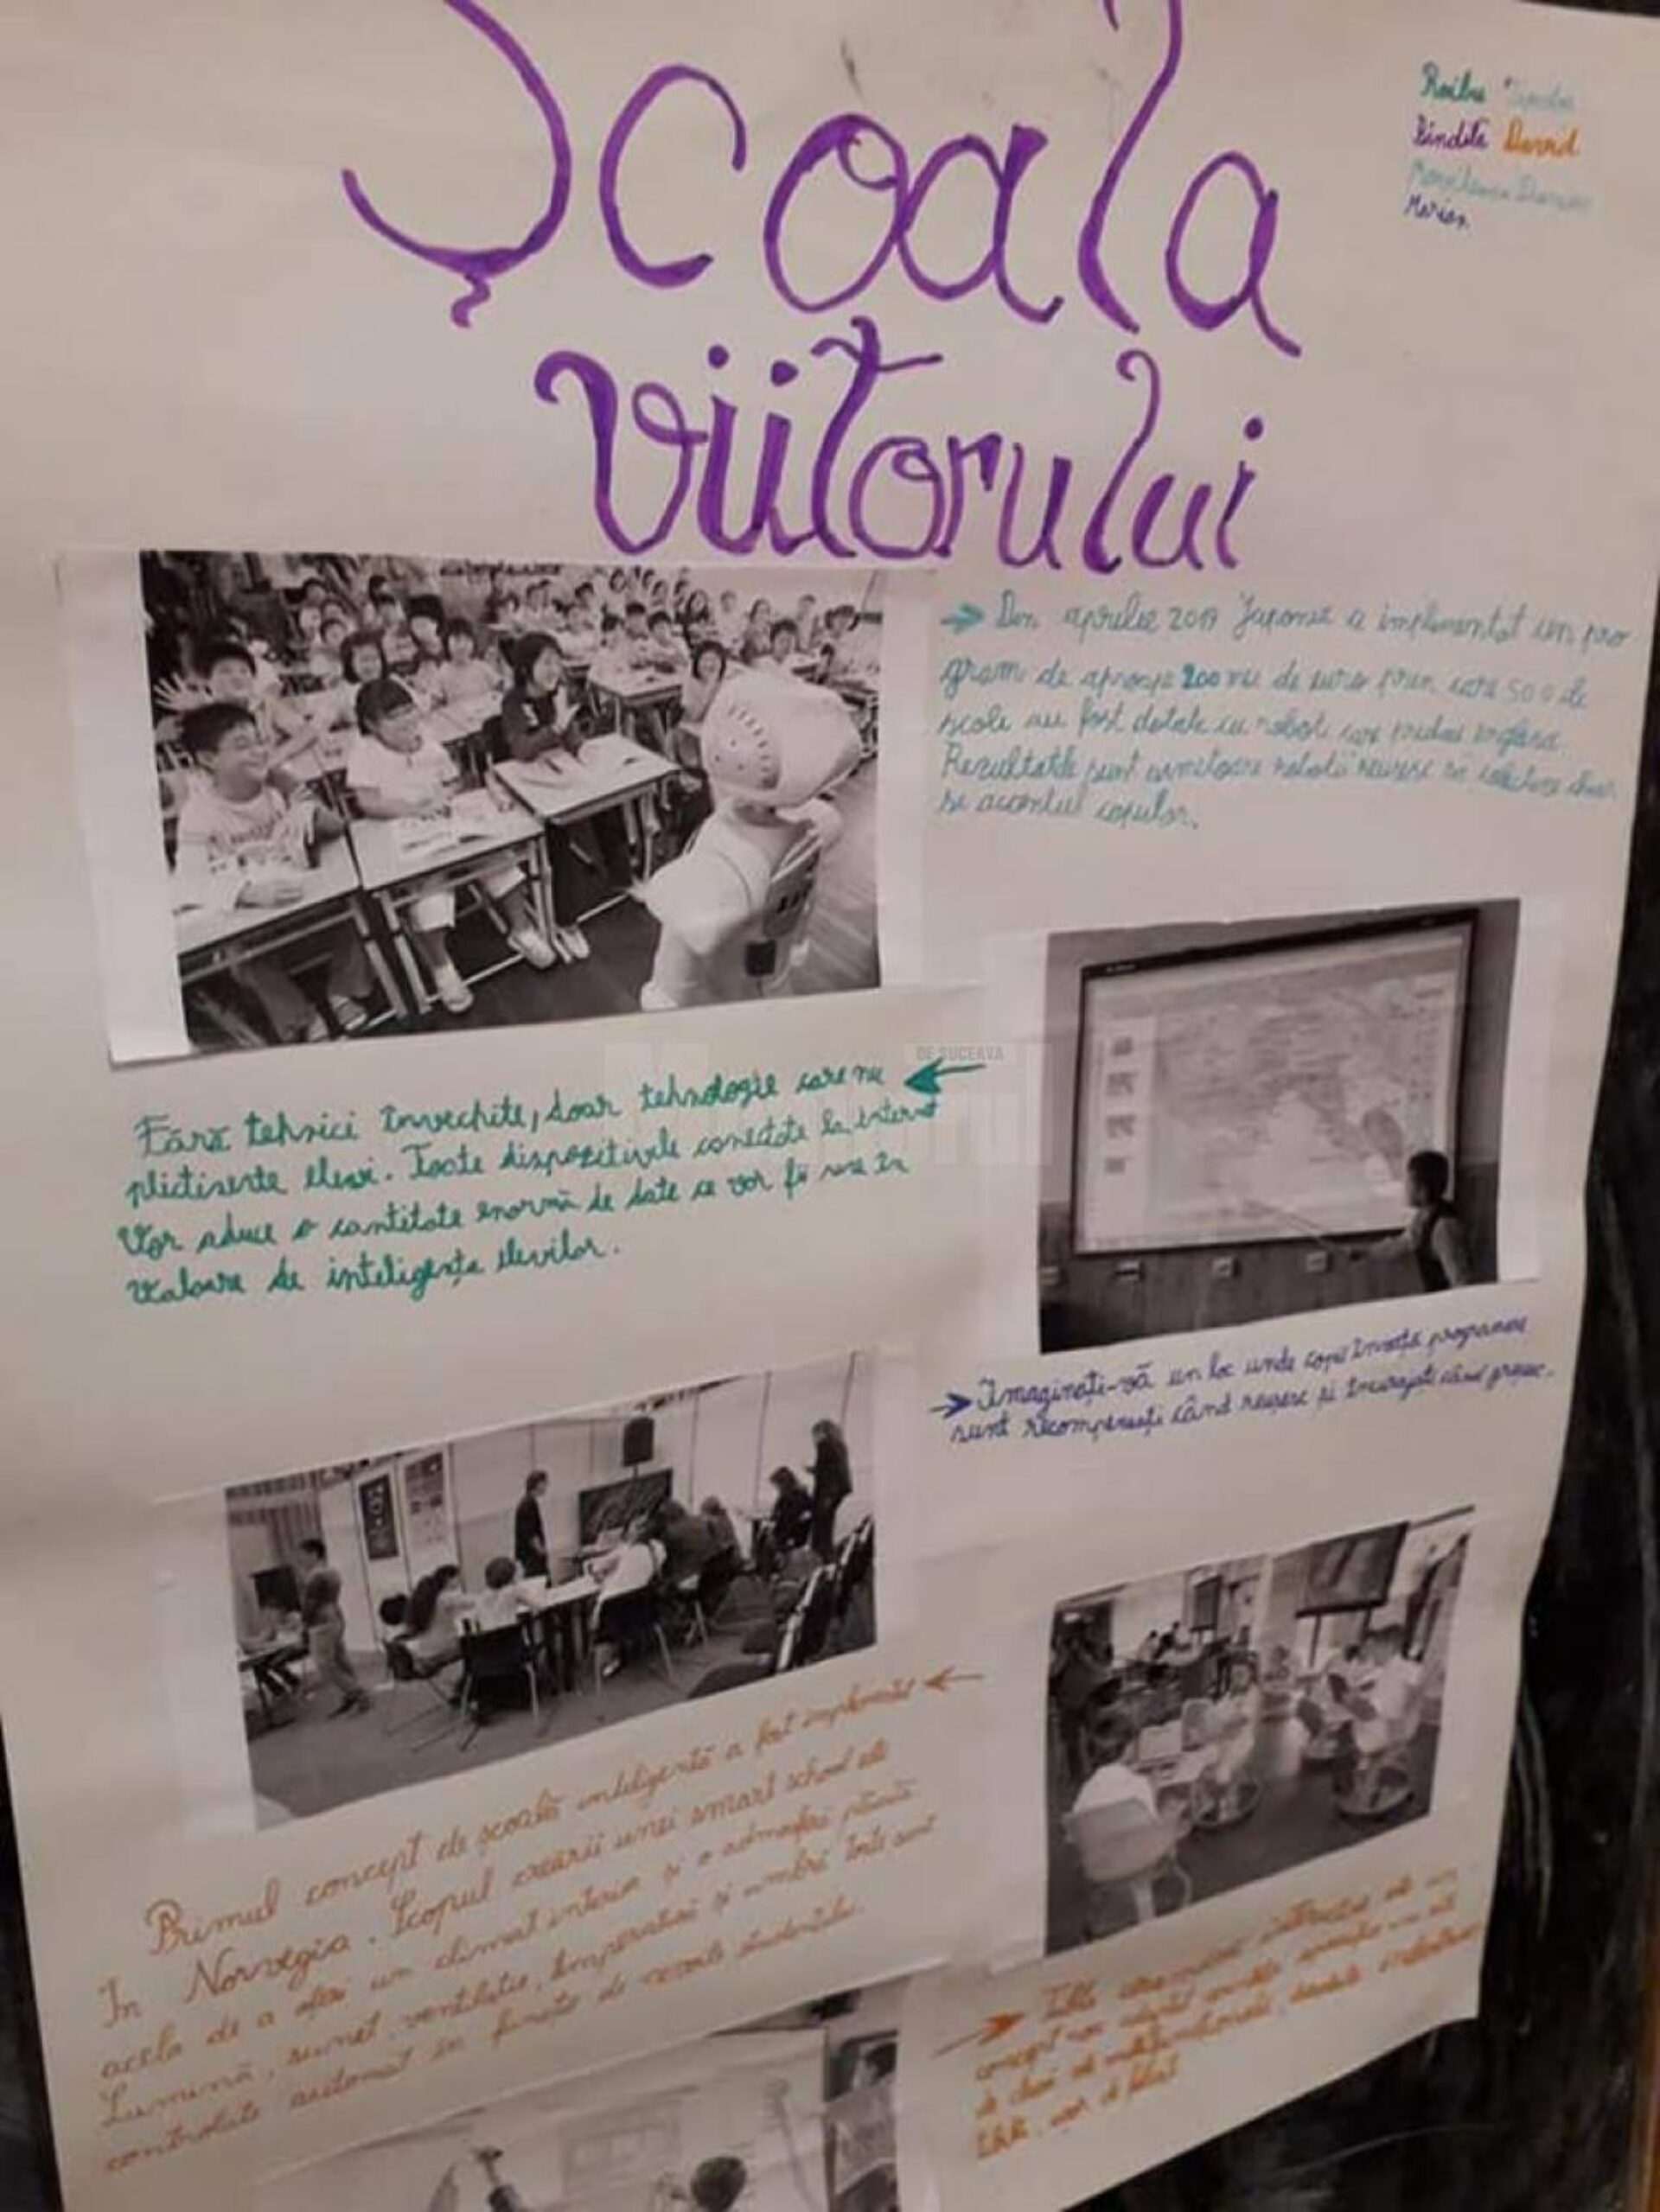 Școala
viitorului
Roibu
David
Marian
→ Din aprilie 2019 Japonia a implementat un pro
gram de aproape 200 mii de euro prin care 500 de
școli au fost dotate cu roboți care predau engleza.
Rezultatele sunt uimitoare roboții reușesc să
și accentul copiilor.
Fără tehnici învechite, doar tehnologie care nu ←
plictisește elevi. Toate dispozitivele conectate la internet
Vor aduce o cantitate enormă de date ce vor fi puse în
valoare de inteligența elevilor.
→ Imaginați-vă un loc unde copii învață programare
sunt recompensați când reușesc și încurajați când greșesc.
Primul concept de școală inteligentă a fost implementat ←
În Norvegia. Scopul creării unei smart school este
acela de a oferi un climat interior și o atmosferă plăcută
Lumină, sunet, ventilație, temperatură și umbră toate sunt
controlate automat în funcție de nevoile studentului.
→ Table interactive
concept
de multifuncționale
DE SUCEAVA